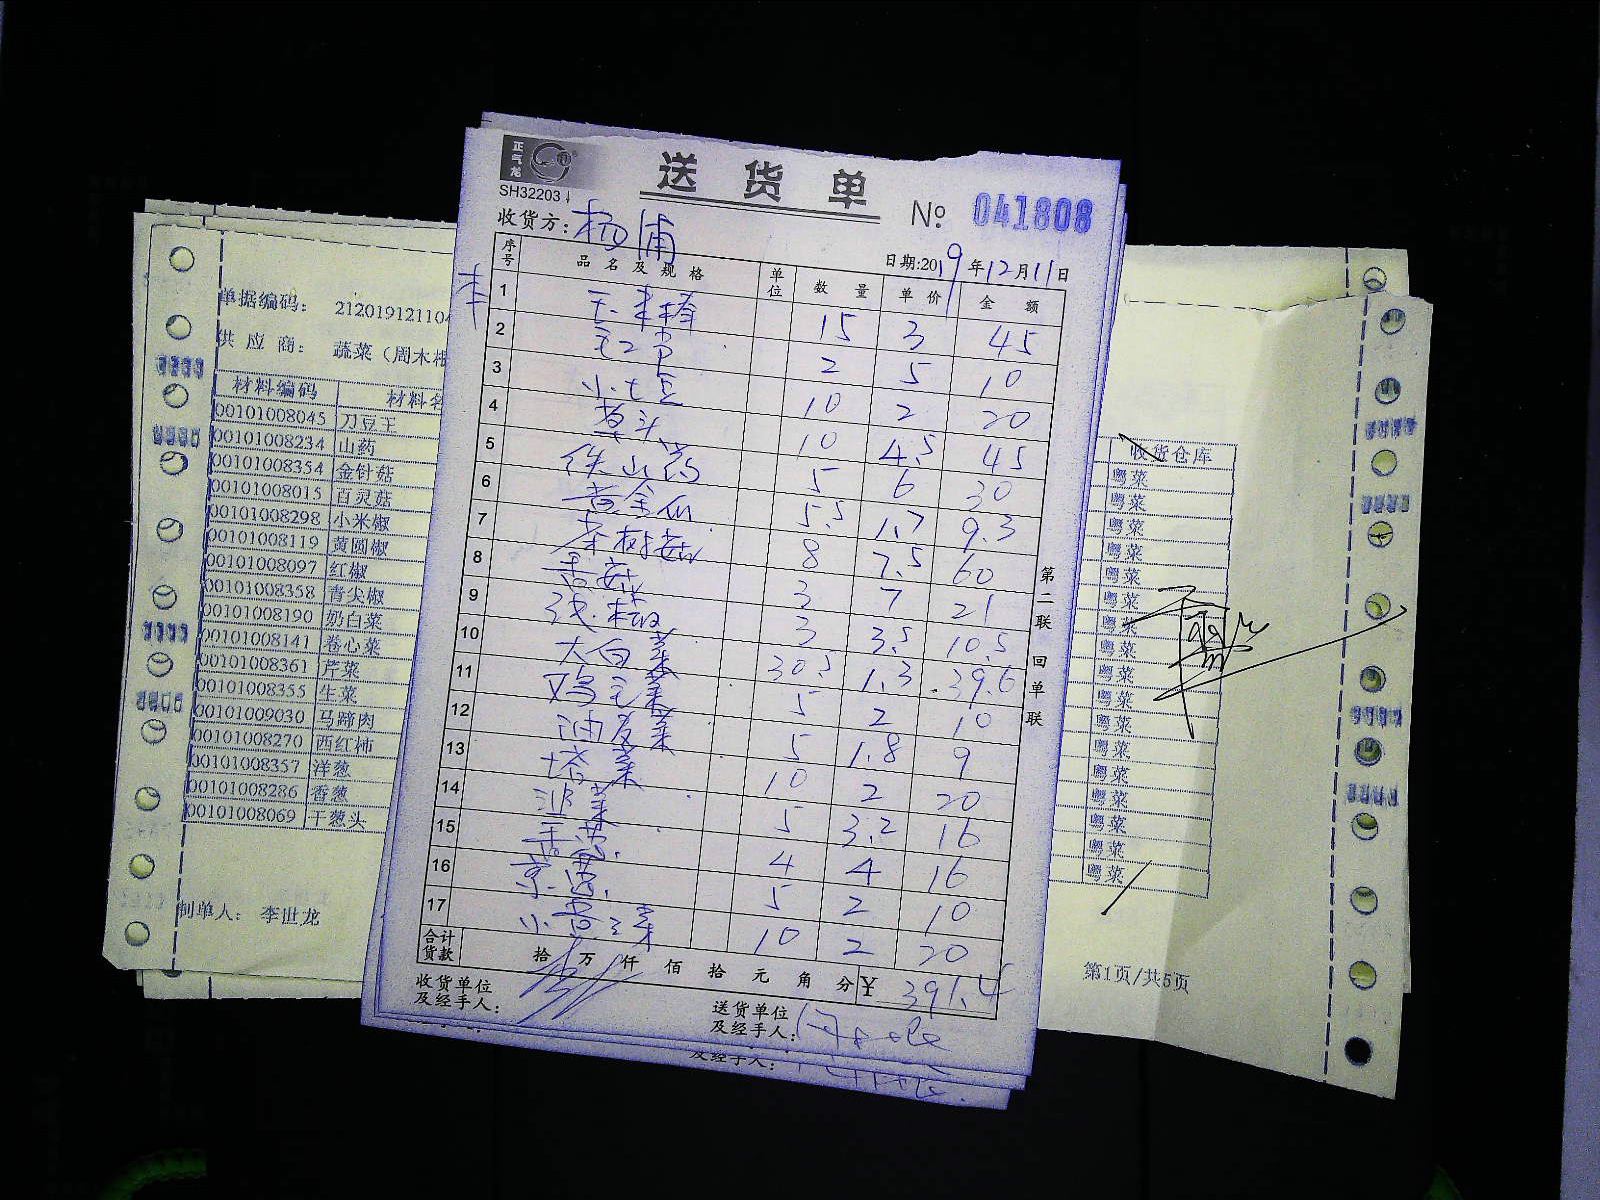 正气龙
SH32203
送货单
№ 041808
收货方: 杨浦
日期:2019年12月11日
序号 品名及规格 单位 数量 单价 金额
1 玉米棒 15 3 45
2 2 5 10
3 小土豆 10 2 20
4 草头 10 4.5 45
5 铁山药 5 6 30
6 黄金瓜 5.5 1.7 9.3
7 茶树菇 8 7.5 60
8 香菇 3 7 21
9 线椒 3 3.5 10.5
10 大白菜 30.5 1.3 39.6
11 鸡毛菜 5 2 10
12 油麦菜 5 1.8 9
13 塔菜 10 2 20
14 菠菜 5 3.2 16
15 香菜 4 4 16
16 京葱 5 2 10
17 小青菜 10 2 20
合计货款 拾 万 仟 佰 拾 元 角 分 ¥ 391.4
收货单位及经手人:
送货单位及经手人:
第二联 回单联
及经手人:
单据编码: 21201912110
供应商: 蔬菜(周木根
材料编码 材料名
00101008045 刀豆王
00101008234 山药
00101008354 金针菇
00101008015 百灵菇
00101008298 小米椒
00101008119 黄圆椒
00101008097 红椒
00101008358 青尖椒
00101008190 奶白菜
00101008141 卷心菜
00101008361 芹菜
00101008355 生菜
00101009030 马蹄肉
00101008270 西红柿
00101008357 洋葱
00101008286 香葱
00101008069 干葱头
制单人: 李世龙
收货仓库
粤菜
粤菜
粤菜
粤菜
粤菜
粤菜
粤菜
粤菜
粤菜
粤菜
粤菜
粤菜
粤菜
粤菜
粤菜
粤菜
粤菜
第1页/共5页